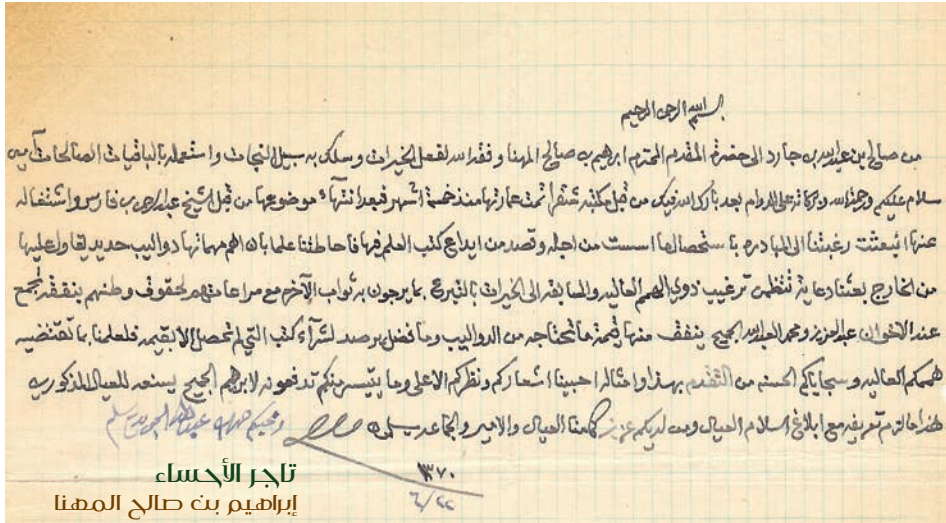 بسم الله الرحمن الرحيم
من صالح بن عبدالله بن جارد الى حضرة المقدم المحترم ابراهيم بن صالح المهنا وفقه الله لفعل الخيرات وسلك به سبيل النجات واستعمله بالباقيات الصالحات آمين
سلام عليكم ورحمة الله وبركاته على الدوام بعد بارك الله فيك من قبل مكتبة شقراء تمت عمارتها منذ خمسة اشهر فبعد انتهاء موضوعها من قبل الشيخ عبدالرحمن بن فارس واشتغاله
عنها انبعثت رغبتنا الى المبادره باستحصال ما اسست من اجله وقصد من ايداع كتب العلم فيها فاحاطتنا علما بان اهم مهماتها دواليب حديد يقاول عليها
من الخارج بعثنا دعاية تتظمن ترغيب ذوي الهمم العاليه والمسابقه الى الخيرات بالتبرع بما يرجون به ثواب الآخره مع مراعاتهم لحقوق وطنهم بنفقة تجمع
عند الاخوان عبدالعزيز ومحمد العبدالله الجميح ينفق منها قيمة ما تحتاجه من الدواليب وما فضل يرصد لشراء كتب التي لا تحصل الا بقيمه فلعلمنا بما تقتضيه
هممكم العاليه وسجاياكم الحسنه من التقدم بهذا وامثاله احببنا اشعاركم ونظركم الاعلى وما يتيسر منكم تدفعونه لابراهيم الجميح يسنعه للعيال المذكورين
هذا ما لزم تعريفه مع ابلاغ السلام العيال ومن لديكم عزيز كما منا العيال والامير والجماعه يسلمون
١٣٧٠
٦/٢٢
تاجر الأحساء
إبراهيم بن صالح المهنا